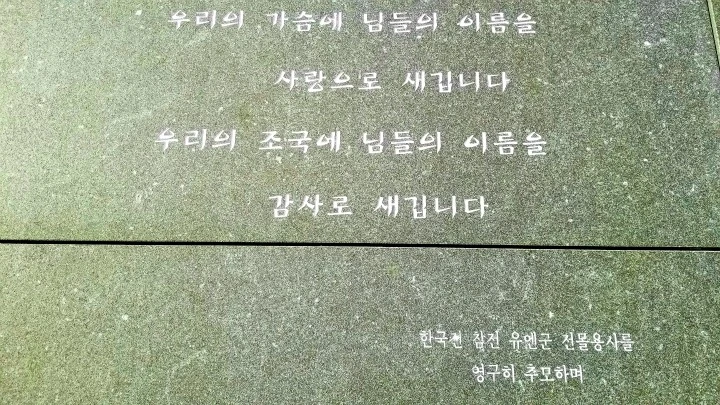 우리의 가슴에 님들의 이름을
사랑으로 새깁니다
우리의 조국에 님들의 이름을
감사로 새깁니다
한국전 참전 유엔군 전몰용사를
영구히 추모하며